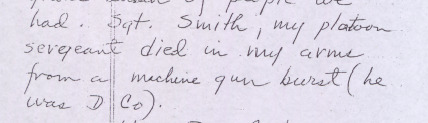 of people we
had. Sgt. Smith, my platoon
sergeant died in my arms
from a machine gun burst (he
was D Co).